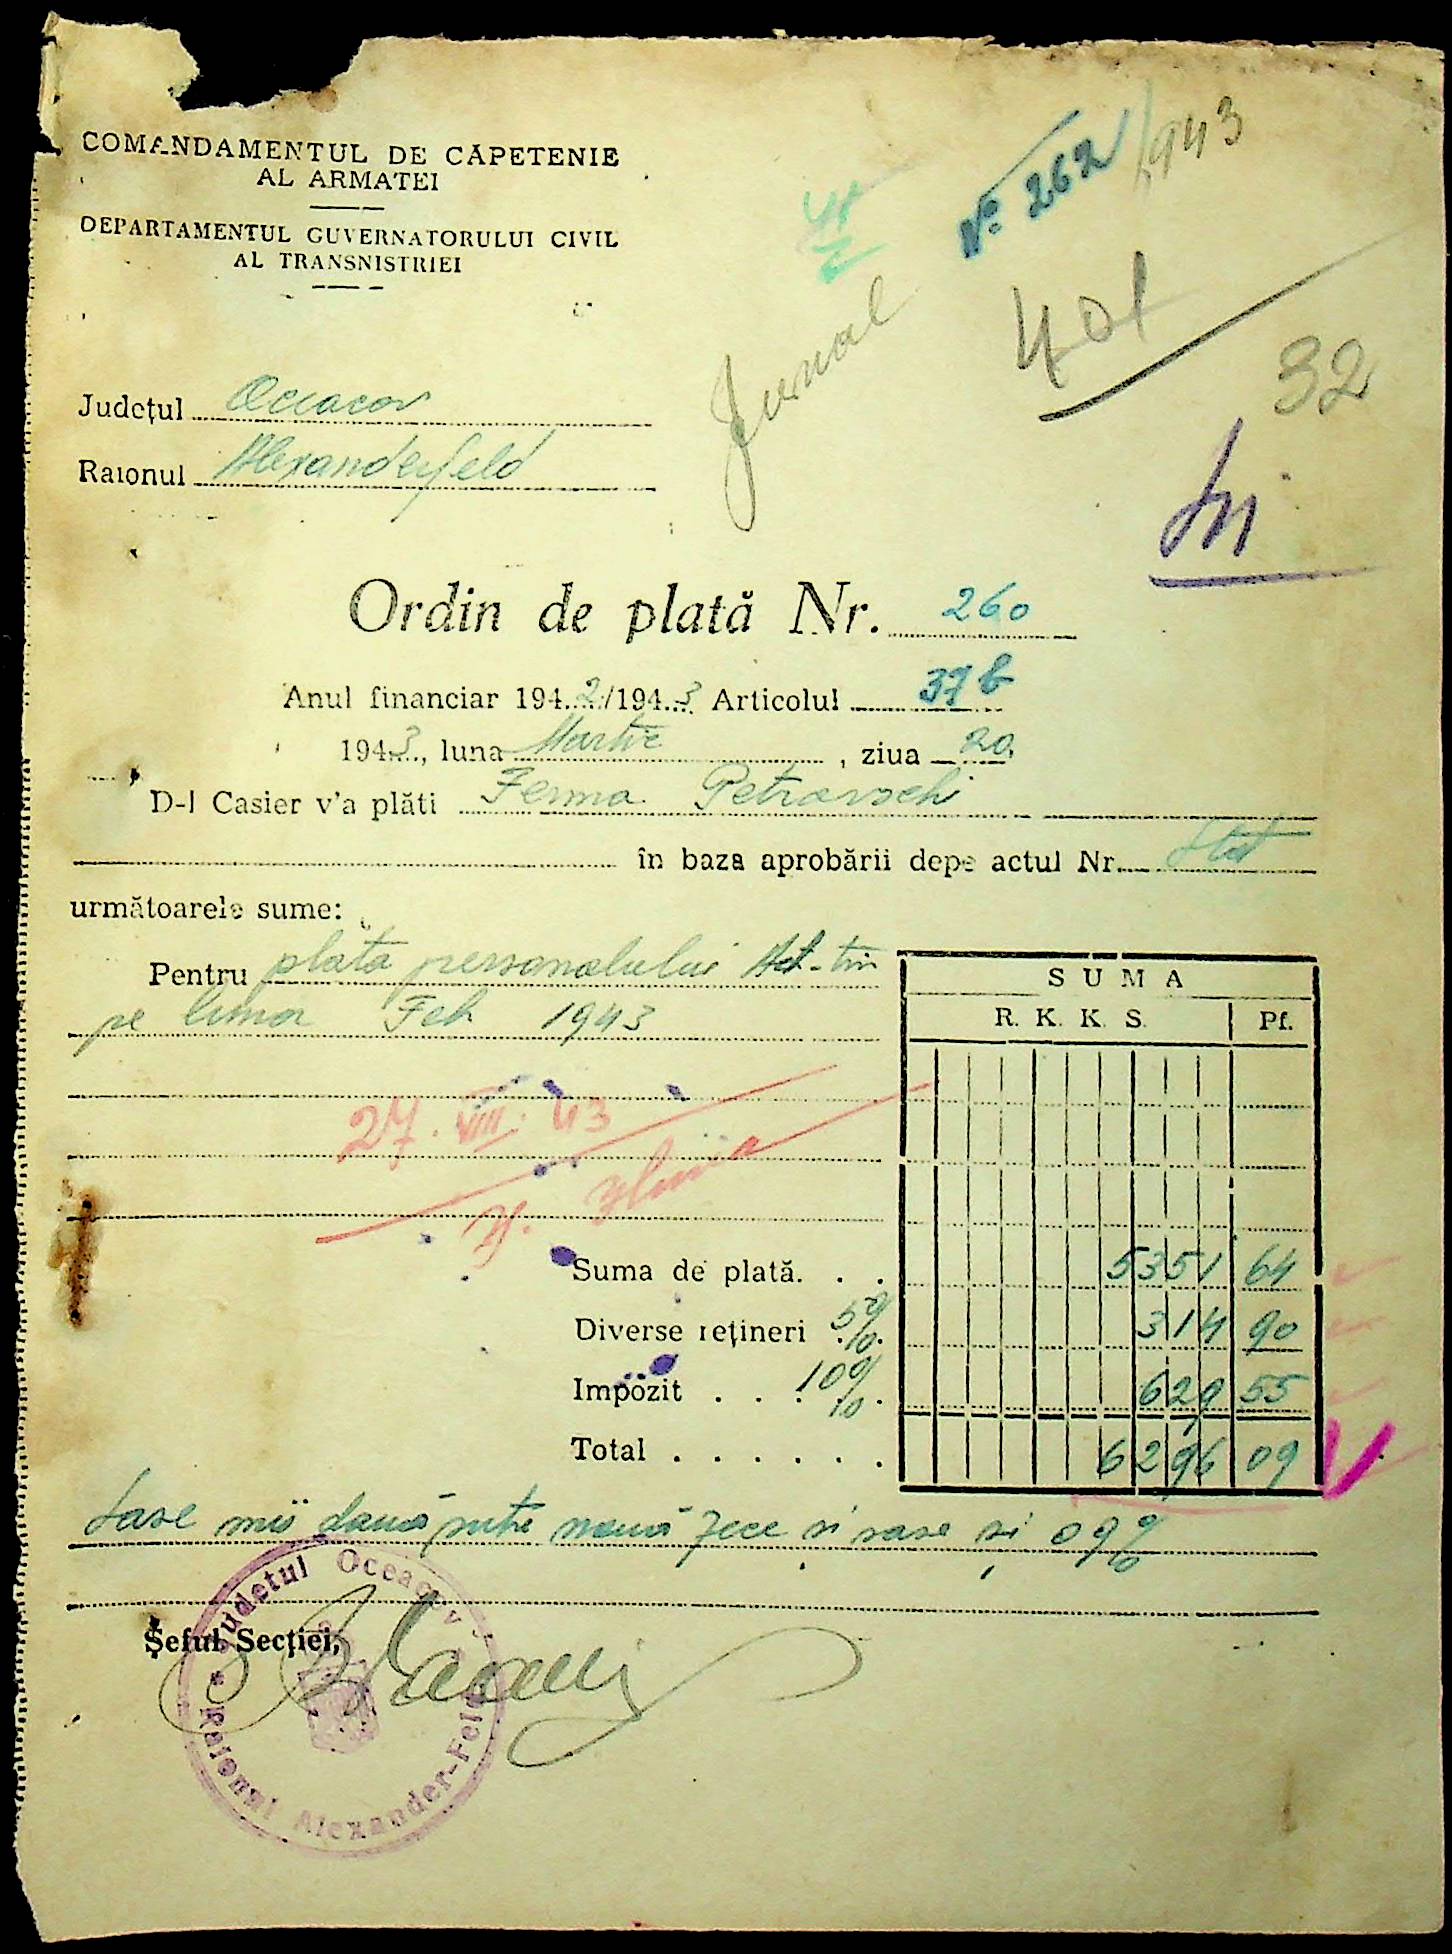 COMANDAMENTUL DE CAPETENIE
AL ARMATEI
DEPARTAMENTUL GUVERNATORULUI CIVIL
AL TRANSNISTRIEI
No 262/943
401
32
Jurnal
Județul Oceacov
Raionul Alexanderfeld
Ordin de plată Nr. 260
Anul financiar 1942/1943 Articolul 37 b
1943, luna Martie, ziua 20
D-l Casier v'a plăti Ferma Petrovschi
în baza aprobării depe actul Nr. Stat
următoarele sume:
Pentru plata personalului
pe luna Feb 1943
SUMA
R. K. K. S. Pf.
27.VIII.43
Suma de plată. . . 5351 64
Diverse rețineri 5% 314 90
Impozit . . . 10% 629 55
Total . . . . . . . 6296 09
Sase mii două sute nouă zece si sase si 09%
Șeful Secției,
Județul Oceacov
Raionul Alexander-Feld